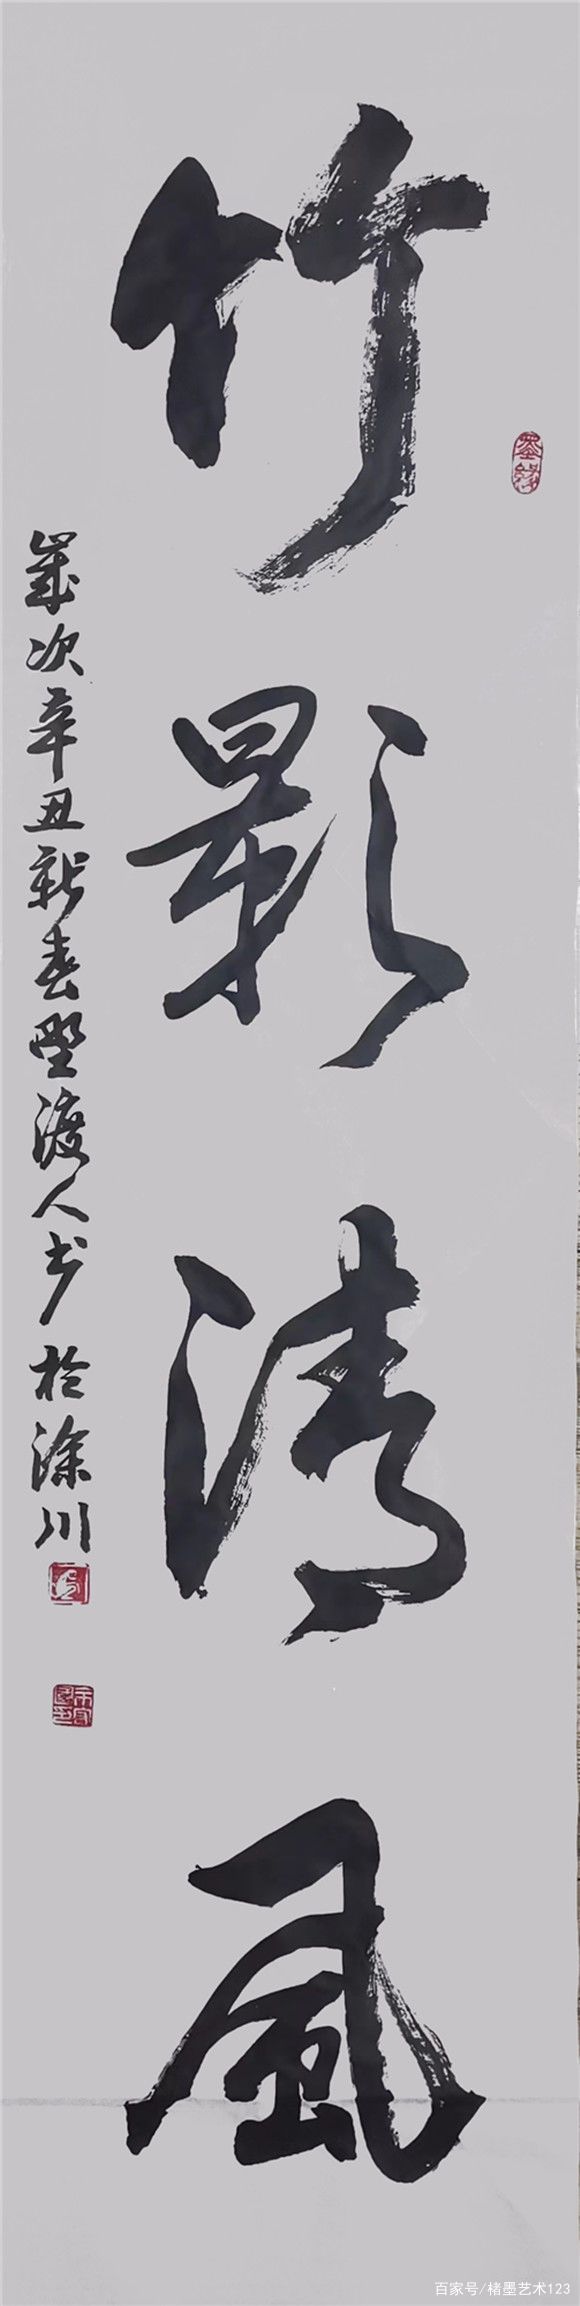 竹影清風
墨緣
歲次辛丑新春野渡人书於涂川
百家号/楮墨艺术123